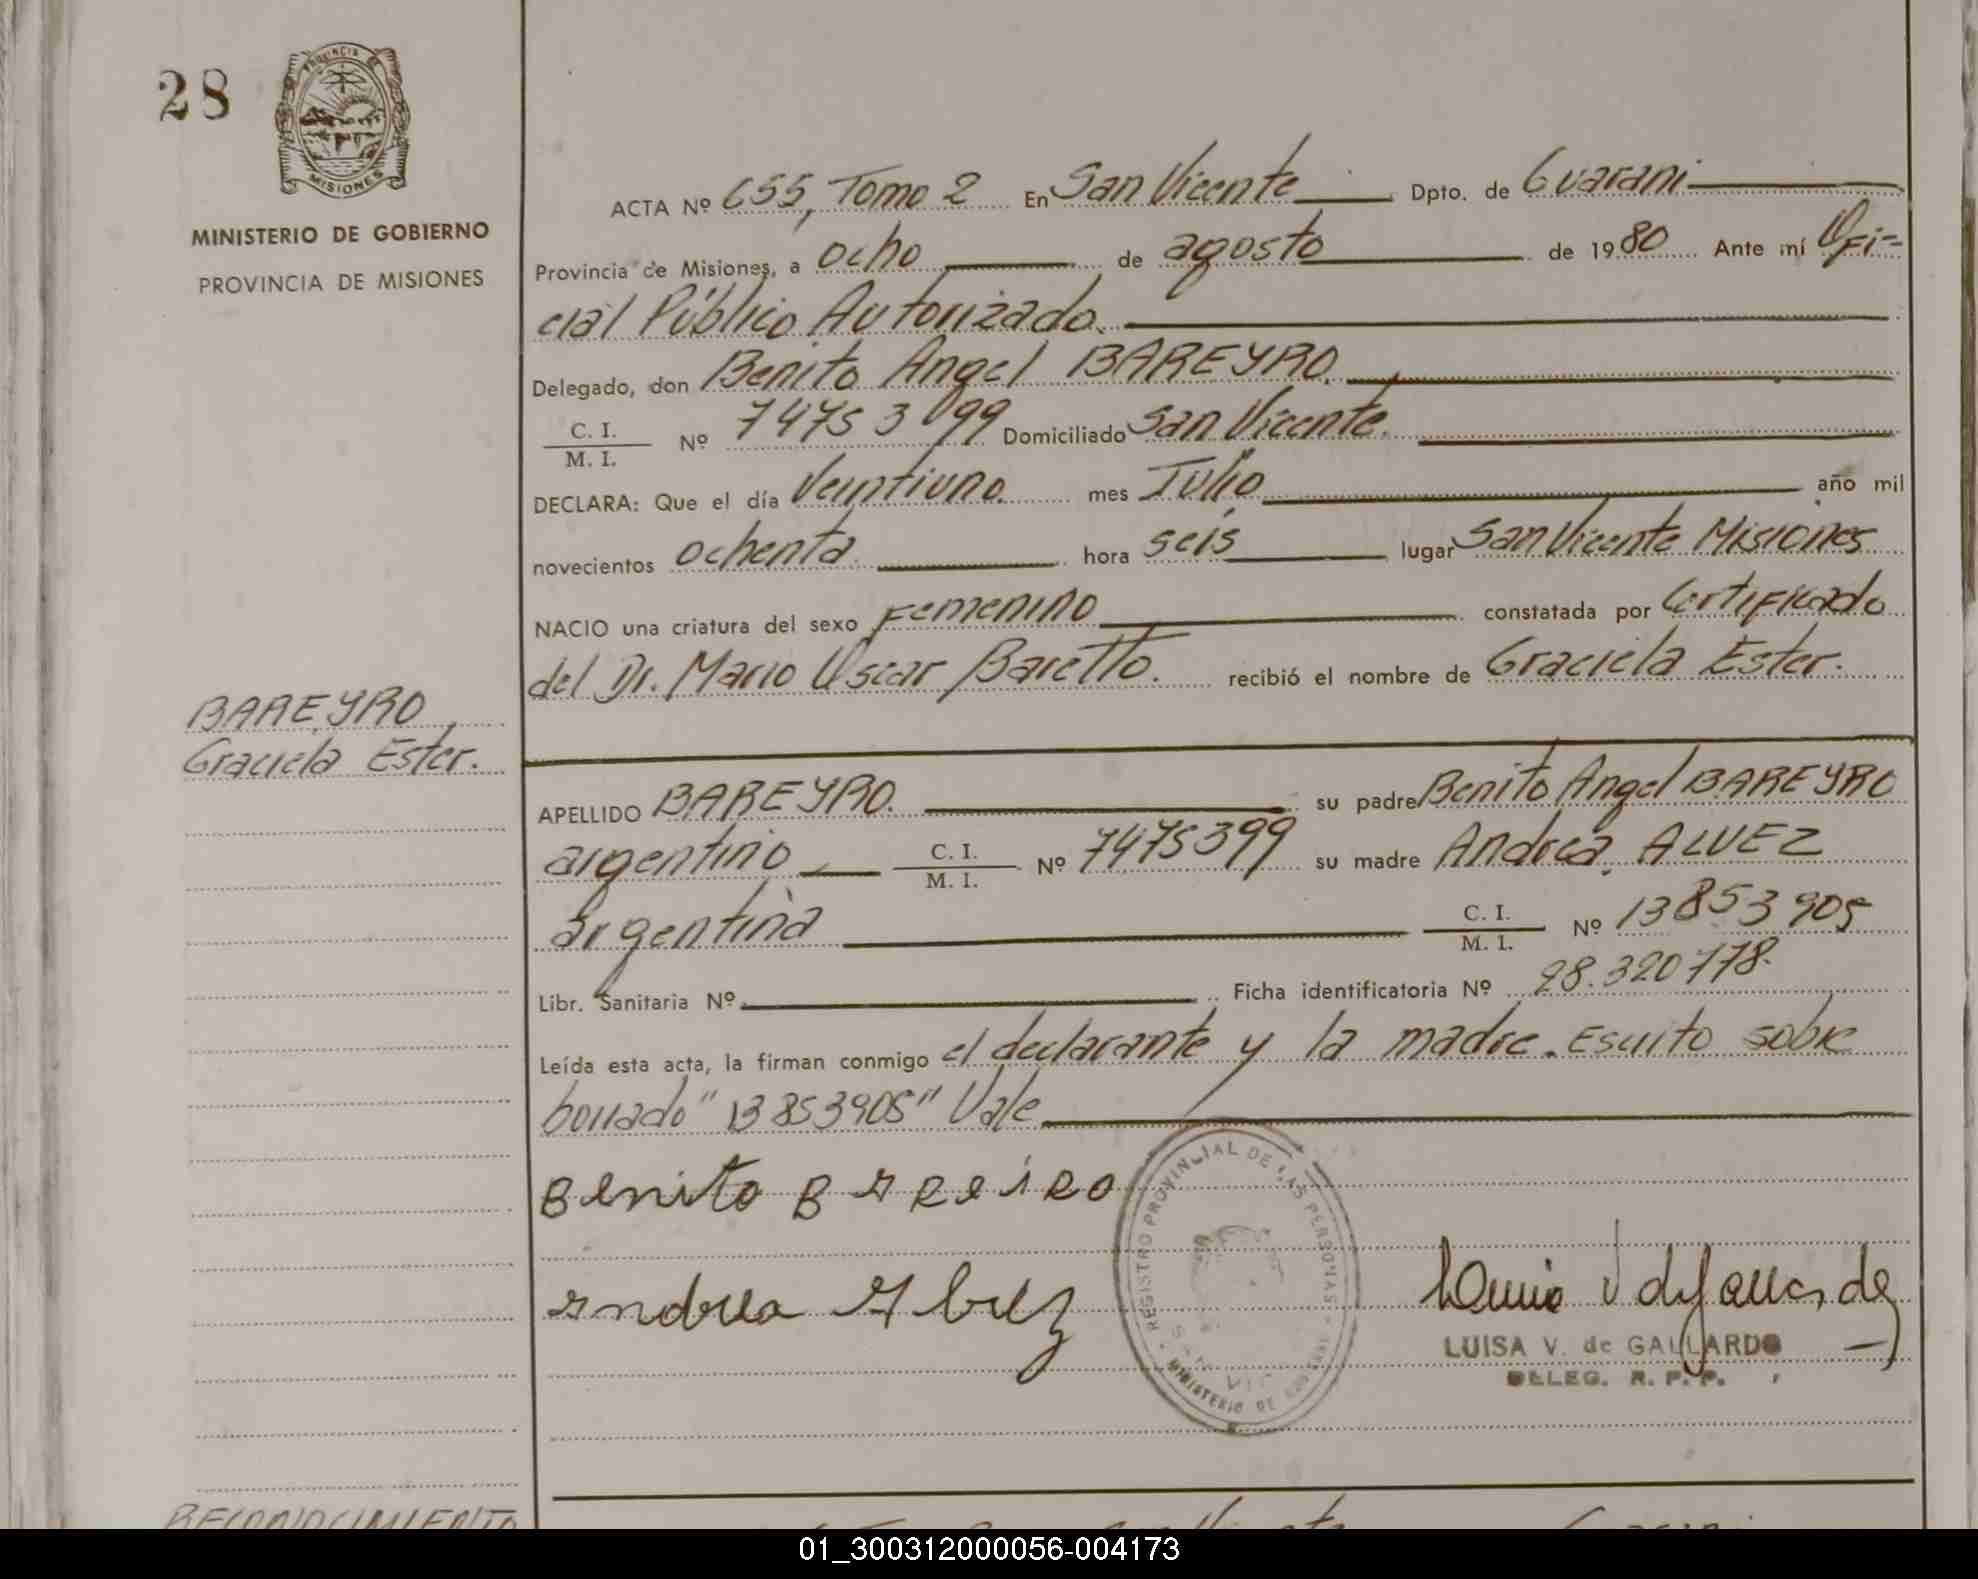 28
PROVINCIA DE
MISIONES
MINISTERIO DE GOBIERNO
PROVINCIA DE MISIONES
ACTA Nº 655, Tomo 2 En San Vicente Dpto. de Guarani
Provincia de Misiones, a ocho de agosto de 1980 Ante mí Ofi=
cial Público Autorizado.
Delegado, don Benito Angel BAREYRO.
C. I.
M. I.
Nº 7475399 Domiciliado San Vicente.
DECLARA: Que el día Veintiuno mes Julio año mil
novecientos ochenta hora seis lugar San Vicente Misiones
NACIO una criatura del sexo Femenino constatada por Certificado
del Dr. Mario Oscar Baretto. recibió el nombre de Graciela Ester.
BAREYRO
Graciela Ester.
APELLIDO BAREYRO. su padre Benito Angel BAREYRO
argentino C. I. M. I. Nº 7475399 su madre Andrea ALVEZ
argentina C. I. M. I. Nº 13853905
Libr. Sanitaria Nº Ficha identificatoria Nº 28.320778.
Leída esta acta, la firman conmigo el declarante y la madre. Escrito sobre
borrado "13853905" Vale
Benito Bareiro
Andrea Alvez
REGISTRO PROVINCIAL DE LAS PERSONAS
MINISTERIO DE GOBIERNO
LUISA V. de GALLARDO
DELEG. R. P. P.
RECONOCIMIENTO
01_300312000056-004173